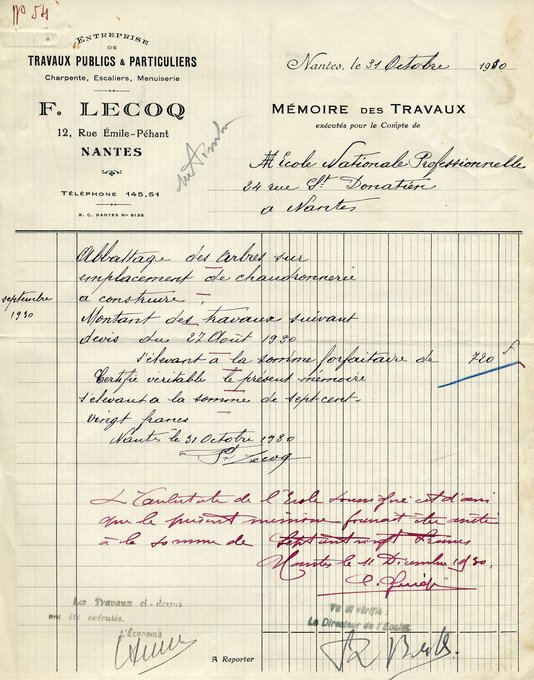 Nº 54
ENTREPRISE
DE
TRAVAUX PUBLICS & PARTICULIERS
Charpente, Escaliers, Menuiserie
F. LECOQ
12, Rue Émile-Péhant
NANTES
TÉLÉPHONE 145,51
R. C. NANTES Nº 8136
Nantes, le 31 Octobre 1930
MÉMOIRE DES TRAVAUX
exécutés pour le Compte de
Ecole Nationale Professionnelle
24 rue St Donatien
a Nantes
septembre
1930
Abbattage des arbres sur
emplacement de chaudronnerie
a construire
Montant des travaux suivant
devis du 27 Août 1930
s'elevant à la somme forfaitaire de 720 f
Certifié veritable le présent mémoire
s'elevant a la somme de sept cent-
vingt francs
Nantes le 31 Octobre 1930
F. Lecoq
L'Architecte de l'Ecole soussigné est d'avis
que le présent mémoire pourrait être arrêté
à la somme de sept cent vingt francs
Nantes le 11 Décembre 1930.
Les Travaux ci-dessus
ont été exécutés.
L'Économe
Vu et vérifié
Le Directeur de l'Ecole
A Reporter